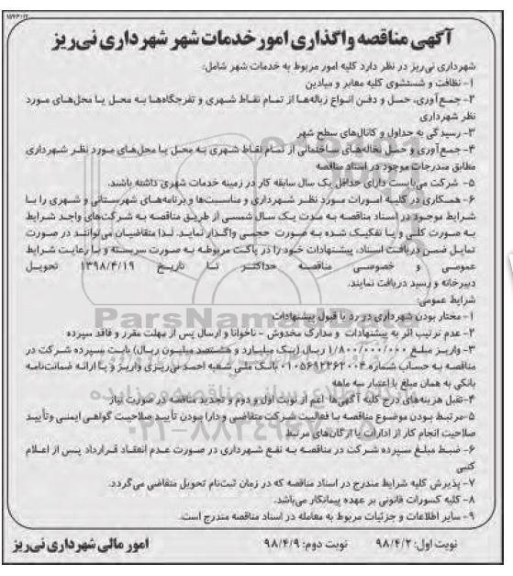 آگهی مناقصه واگذاری امور خدمات شهر شهرداری نی‌ریز
شهرداری نی‌ریز در نظر دارد کلیه امور مربوط به خدمات شهر شامل:
۱- نظافت و شستشوی کلیه معابر و میادین
۲- جمع‌آوری، حمل و دفن انواع زباله‌ها از تمام نقاط شهری و تفرجگاه‌ها به محل یا محل‌های مورد
نظر شهرداری
۳- رسیدگی به جداول و کانال‌های سطح شهر
۴- جمع‌آوری و حمل نخاله‌های ساختمانی از تمام نقاط شهری به محل یا محل‌های مورد نظر شهرداری
مطابق مندرجات موجود در اسناد مناقصه
۵- شرکت می‌بایست دارای حداقل یک سال سابقه کار در زمینه خدمات شهری داشته باشند.
۶- همکاری در کلیه امورات مورد نظر شهرداری و مناسبت‌ها و برنامه‌های شهرستانی و شهری را با
شرایط موجود در اسناد مناقصه به مدت یک سال شمسی از طریق مناقصه به شرکت‌های واجد شرایط
به صورت کلی و یا تفکیک شده به صورت حجمی واگذار نماید. لذا متقاضیان می‌توانند در صورت
تمایل ضمن دریافت اسناد، پیشنهادات خود را در پاکت مربوطه به صورت سربسته و با رعایت شرایط
عمومی و خصوصی مناقصه حداکثر تا تاریخ ۱۳۹۸/۴/۱۹ تحویل
دبیرخانه و رسید دریافت نمایند.
شرایط عمومی:
۱- مختار بودن شهرداری در رد یا قبول پیشنهادات
۲- عدم ترتیب اثر به پیشنهادات و مدارک مخدوش - ناخوانا و ارسال پس از مهلت مقرر و فاقد سپرده
۳- واریز مبلغ ۱/۸۰۰/۰۰۰/۰۰۰ ریال (یک میلیارد و هشتصد میلیون ریال) بابت سپرده شرکت در
مناقصه به حساب شماره بانک ملی شعبه احمد نی‌ریزی واریز و یا ارائه ضمانت‌نامه
بانکی به همان مبلغ با اعتبار سه ماهه
۴- تقبل هزینه‌های درج کلیه آگهی‌ها اعم از نوبت اول و دوم و تجدید مناقصه در صورت نیاز
۵- مرتبط بودن موضوع مناقصه با فعالیت شرکت متقاضی و دارا بودن تأیید صلاحیت گواهی ایمنی و تأیید
صلاحیت انجام کار از ادارات یا ارگان‌های مرتبط
۶- ضبط مبلغ سپرده شرکت در مناقصه به نفع شهرداری در صورت عدم انعقاد قرارداد پس از اعلام
کتبی
۷- پذیرش کلیه شرایط مندرج در اسناد مناقصه که در زمان ثبت‌نام تحویل متقاضی می‌گردد.
۸- کلیه کسورات قانونی بر عهده پیمانکار می‌باشد.
۹- سایر اطلاعات و جزئیات مربوط به معامله در اسناد مناقصه مندرج است.
نوبت اول: ۹۸/۴/۲ نوبت دوم: ۹۸/۴/۹ امور مالی شهرداری نی‌ریز